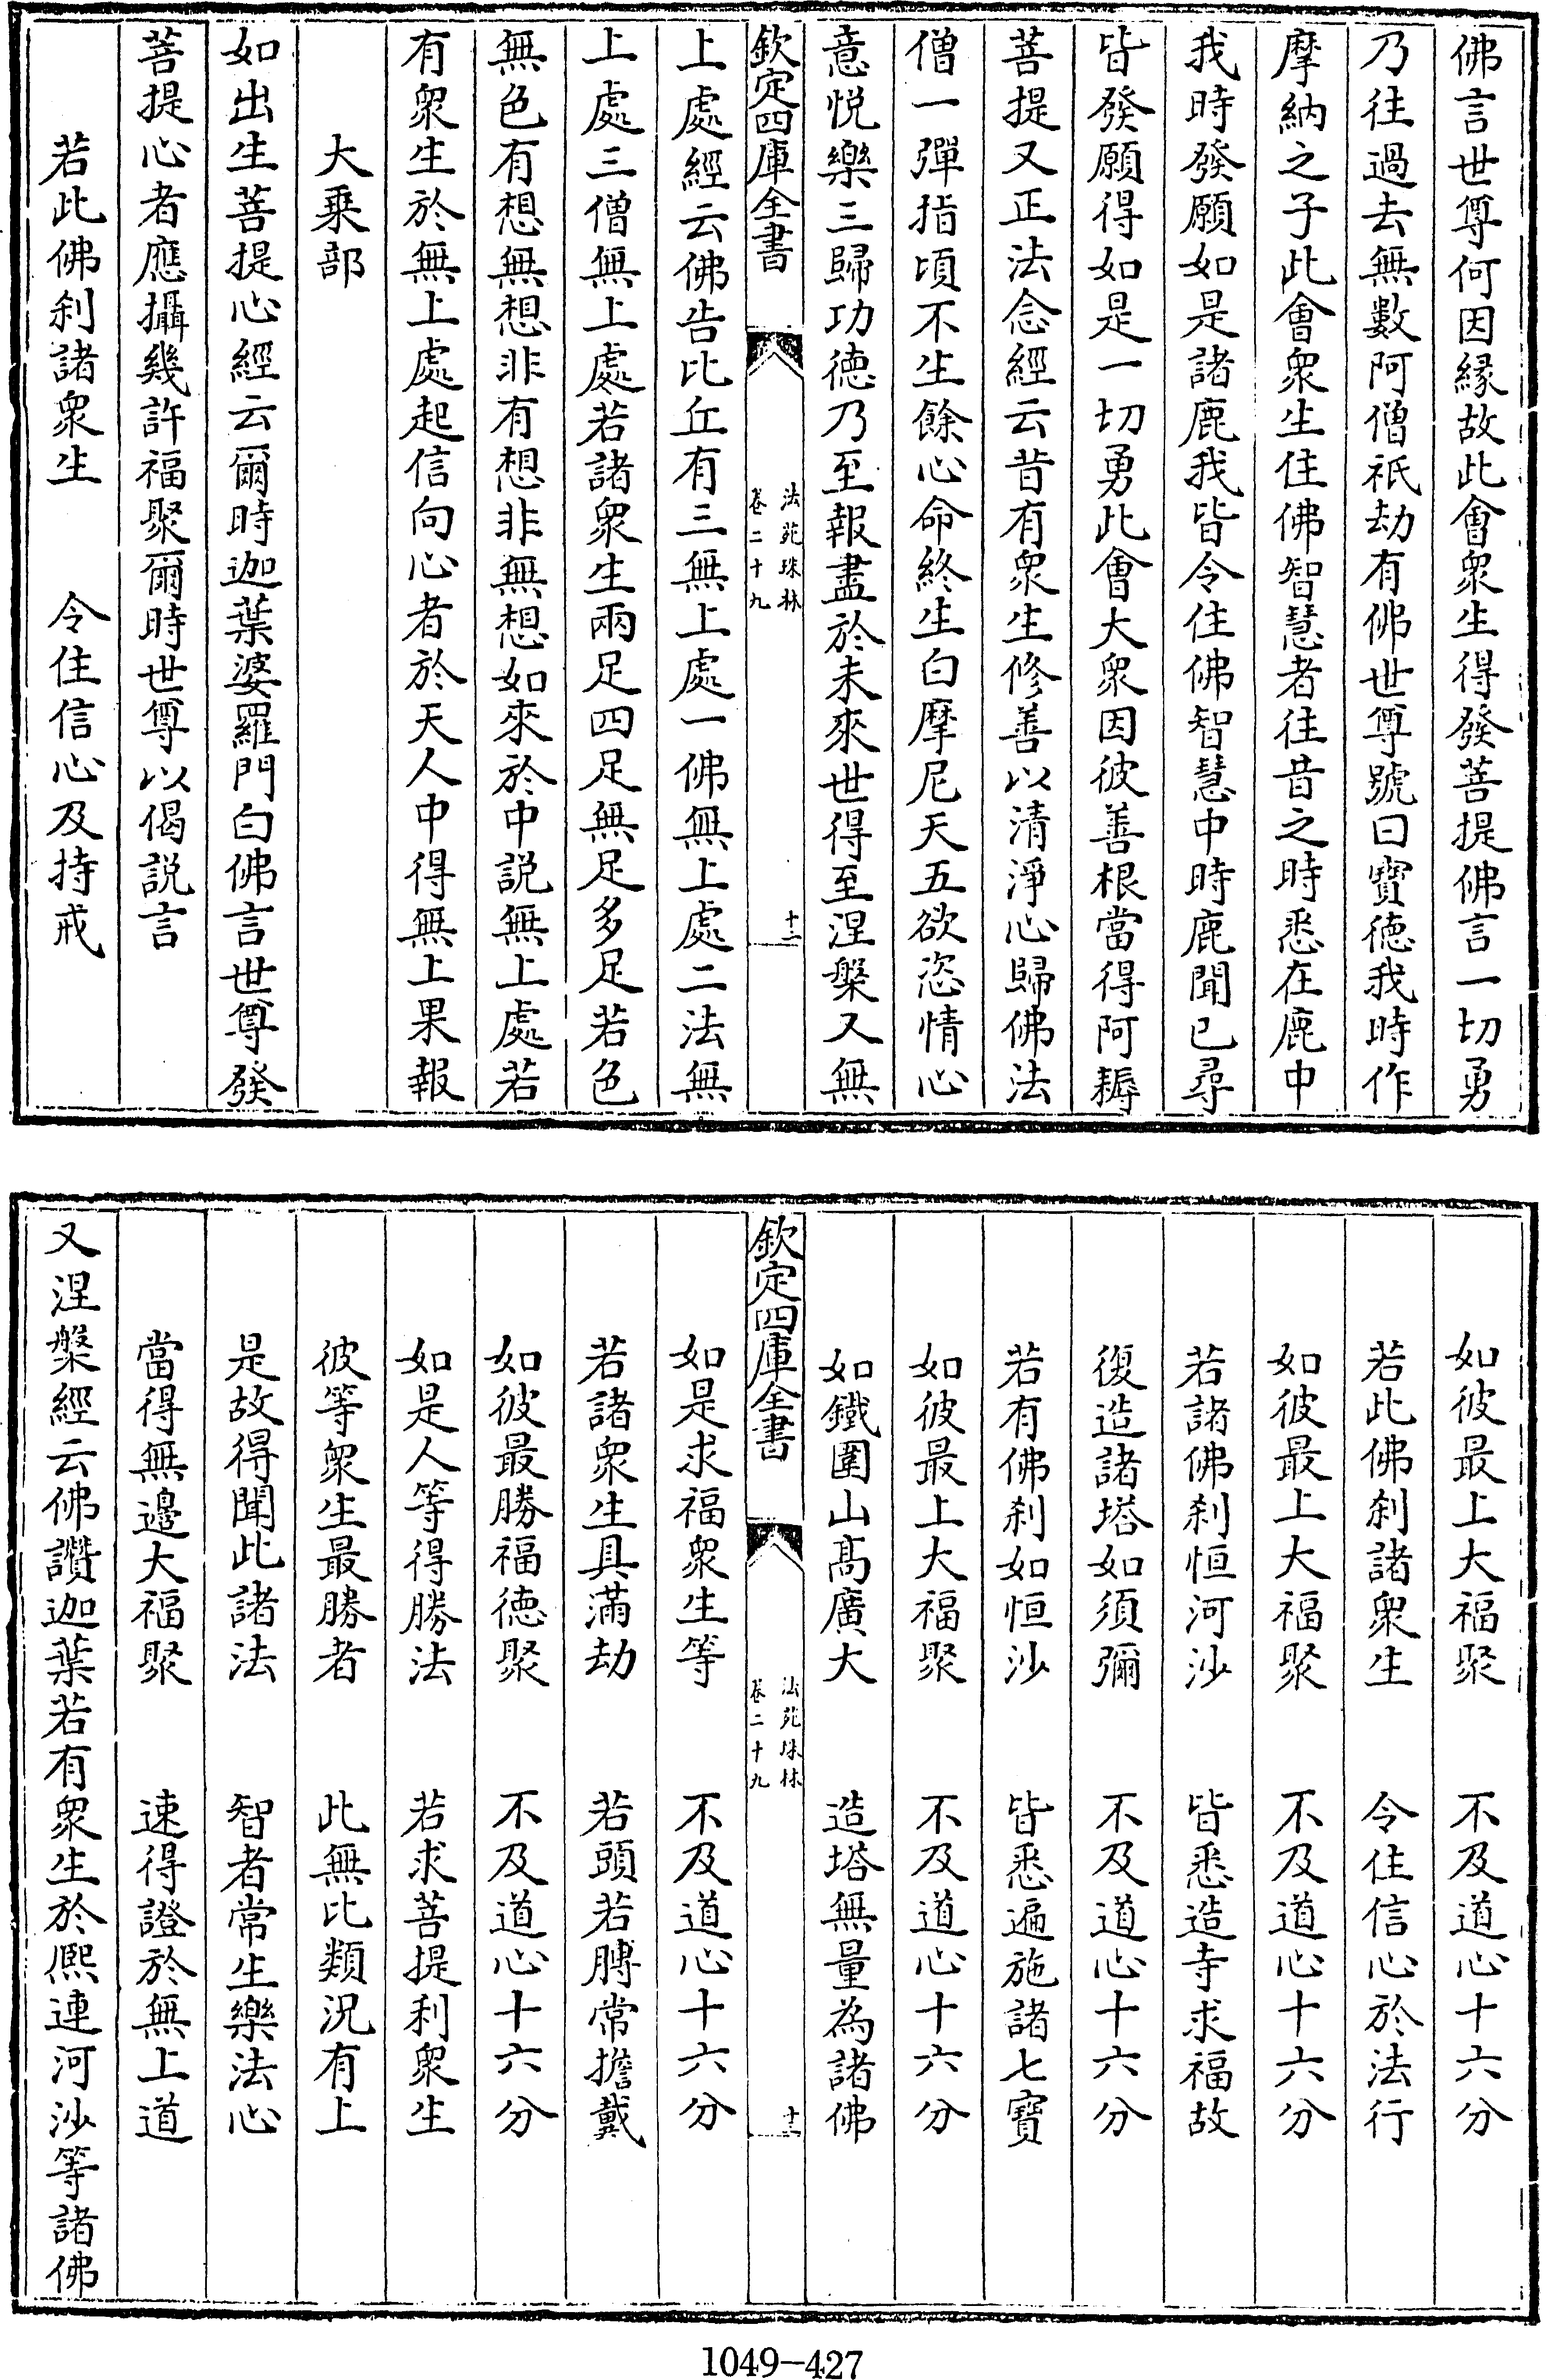 佛言世尊何因緣故此會衆生得發菩提佛言一切勇
乃往過去無數阿僧祇劫有佛世尊號曰寶徳我時作
摩納之子此會衆生住佛智慧者往昔之時悉在鹿中
我時發願如是諸鹿我皆令住佛智慧中時鹿聞已尋
皆發願得如是一切勇此會大衆因彼善根當得阿耨
菩提又正法念經云昔有衆生修善以清淨心歸佛法
僧一彈指頃不生餘心命終生白摩尼天五欲恣情心
意悅樂三歸功徳乃至報盡於未來世得至涅槃又無
欽定四庫全書
法苑珠林
卷二十九
十二
上處經云佛告比丘有三無上處一佛無上處二法無
上處三僧無上處若諸衆生兩足四足無足多足若色
無色有想無想非有想非無想如來於中説無上處若
有衆生於無上處起信向心者於天人中得無上果報
大乗部
如出生菩提心經云爾時迦葉婆羅門白佛言世尊發
菩提心者應攝幾許福聚爾時世尊以偈説言
若此佛刹諸衆生　令住信心及持戒
如彼最上大福聚　不及道心十六分
若此佛刹諸衆生　令住信心於法行
如彼最上大福聚　不及道心十六分
若諸佛刹恒河沙　皆悉造寺求福故
復造諸塔如須彌　不及道心十六分
若有佛刹如恒沙　皆悉遍施諸七寶
如彼最上大福聚　不及道心十六分
如鐵圍山髙廣大　造塔無量為諸佛
欽定四庫全書
法苑珠林
卷二十九
十三
如是求福衆生等　不及道心十六分
若諸衆生具滿劫　若頭若膊常擔戴
如彼最勝福徳聚　不及道心十六分
如是人等得勝法　若求菩提利衆生
彼等衆生最勝者　此無比類況有上
是故得聞此諸法　智者常生樂法心
當得無邊大福聚　速得證於無上道
又涅槃經云佛讚迦葉若有衆生於熈連河沙等諸佛
1049-427